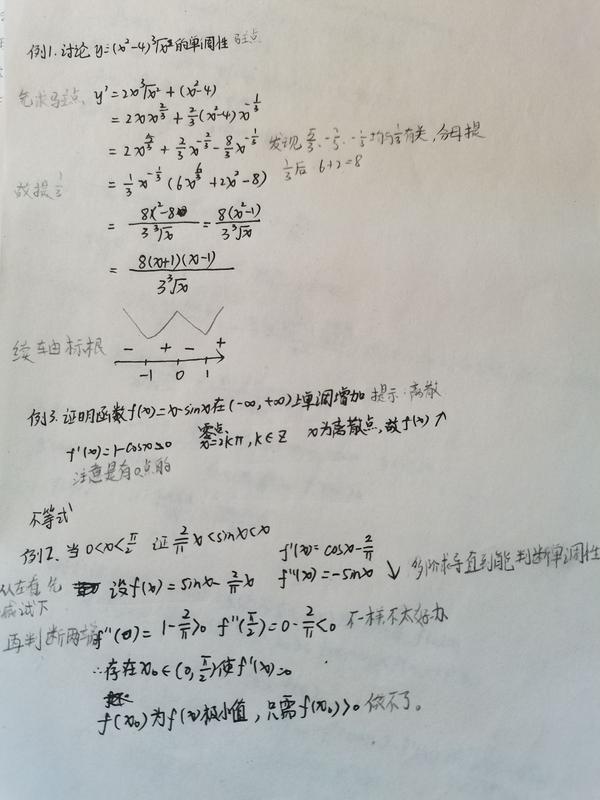 例1.讨论 y=(x²-4)³√x² 的单调性 驻点
先求驻点. y'=2x³√x²+(x²-4)
=2x x^(2/3)+2/3(x²-4)x^(-1/3)
=2x^(5/3)+2/3x^(-2/3)-8/3x^(-1/3) 发现5/3、-1/3、-1/3均与1/3有关,分母提
1/3后 6+2=8
故提1/3 =1/3x^(-1/3)(6x^(6/3)+2x²-8)
=(8x²-8)/(3³√x)=8(x²-1)/(3³√x)
=8(x+1)(x-1)/(3³√x)
续轴曲标根 - + - +
-1 0 1
例3.证明函数f(x)=x-sinx在(-∞,+∞)上单调增加 提示:离散
f'(x)=1-cosx≥0 零点x=2kπ,k∈Z x为离散点,故f(x)↑
注意是有0点的
不等式
例2.当0<x<π/2 证 2/π x<sinx<x
f'(x)=cosx-2/π
从左看先 设f(x)=sinx-2/π x f''(x)=-sinx ↓ 多阶求导直到能判断单调性
减试下
再判断两端 f''(0)=1-2/π>0 f''(π/2)=0-2/π<0 不一样不太好办
∴存在x₀∈(0,π/2)使f'(x)=0
f(x₀)为f(x)极小值,只需f(x₀)>0 做不了。